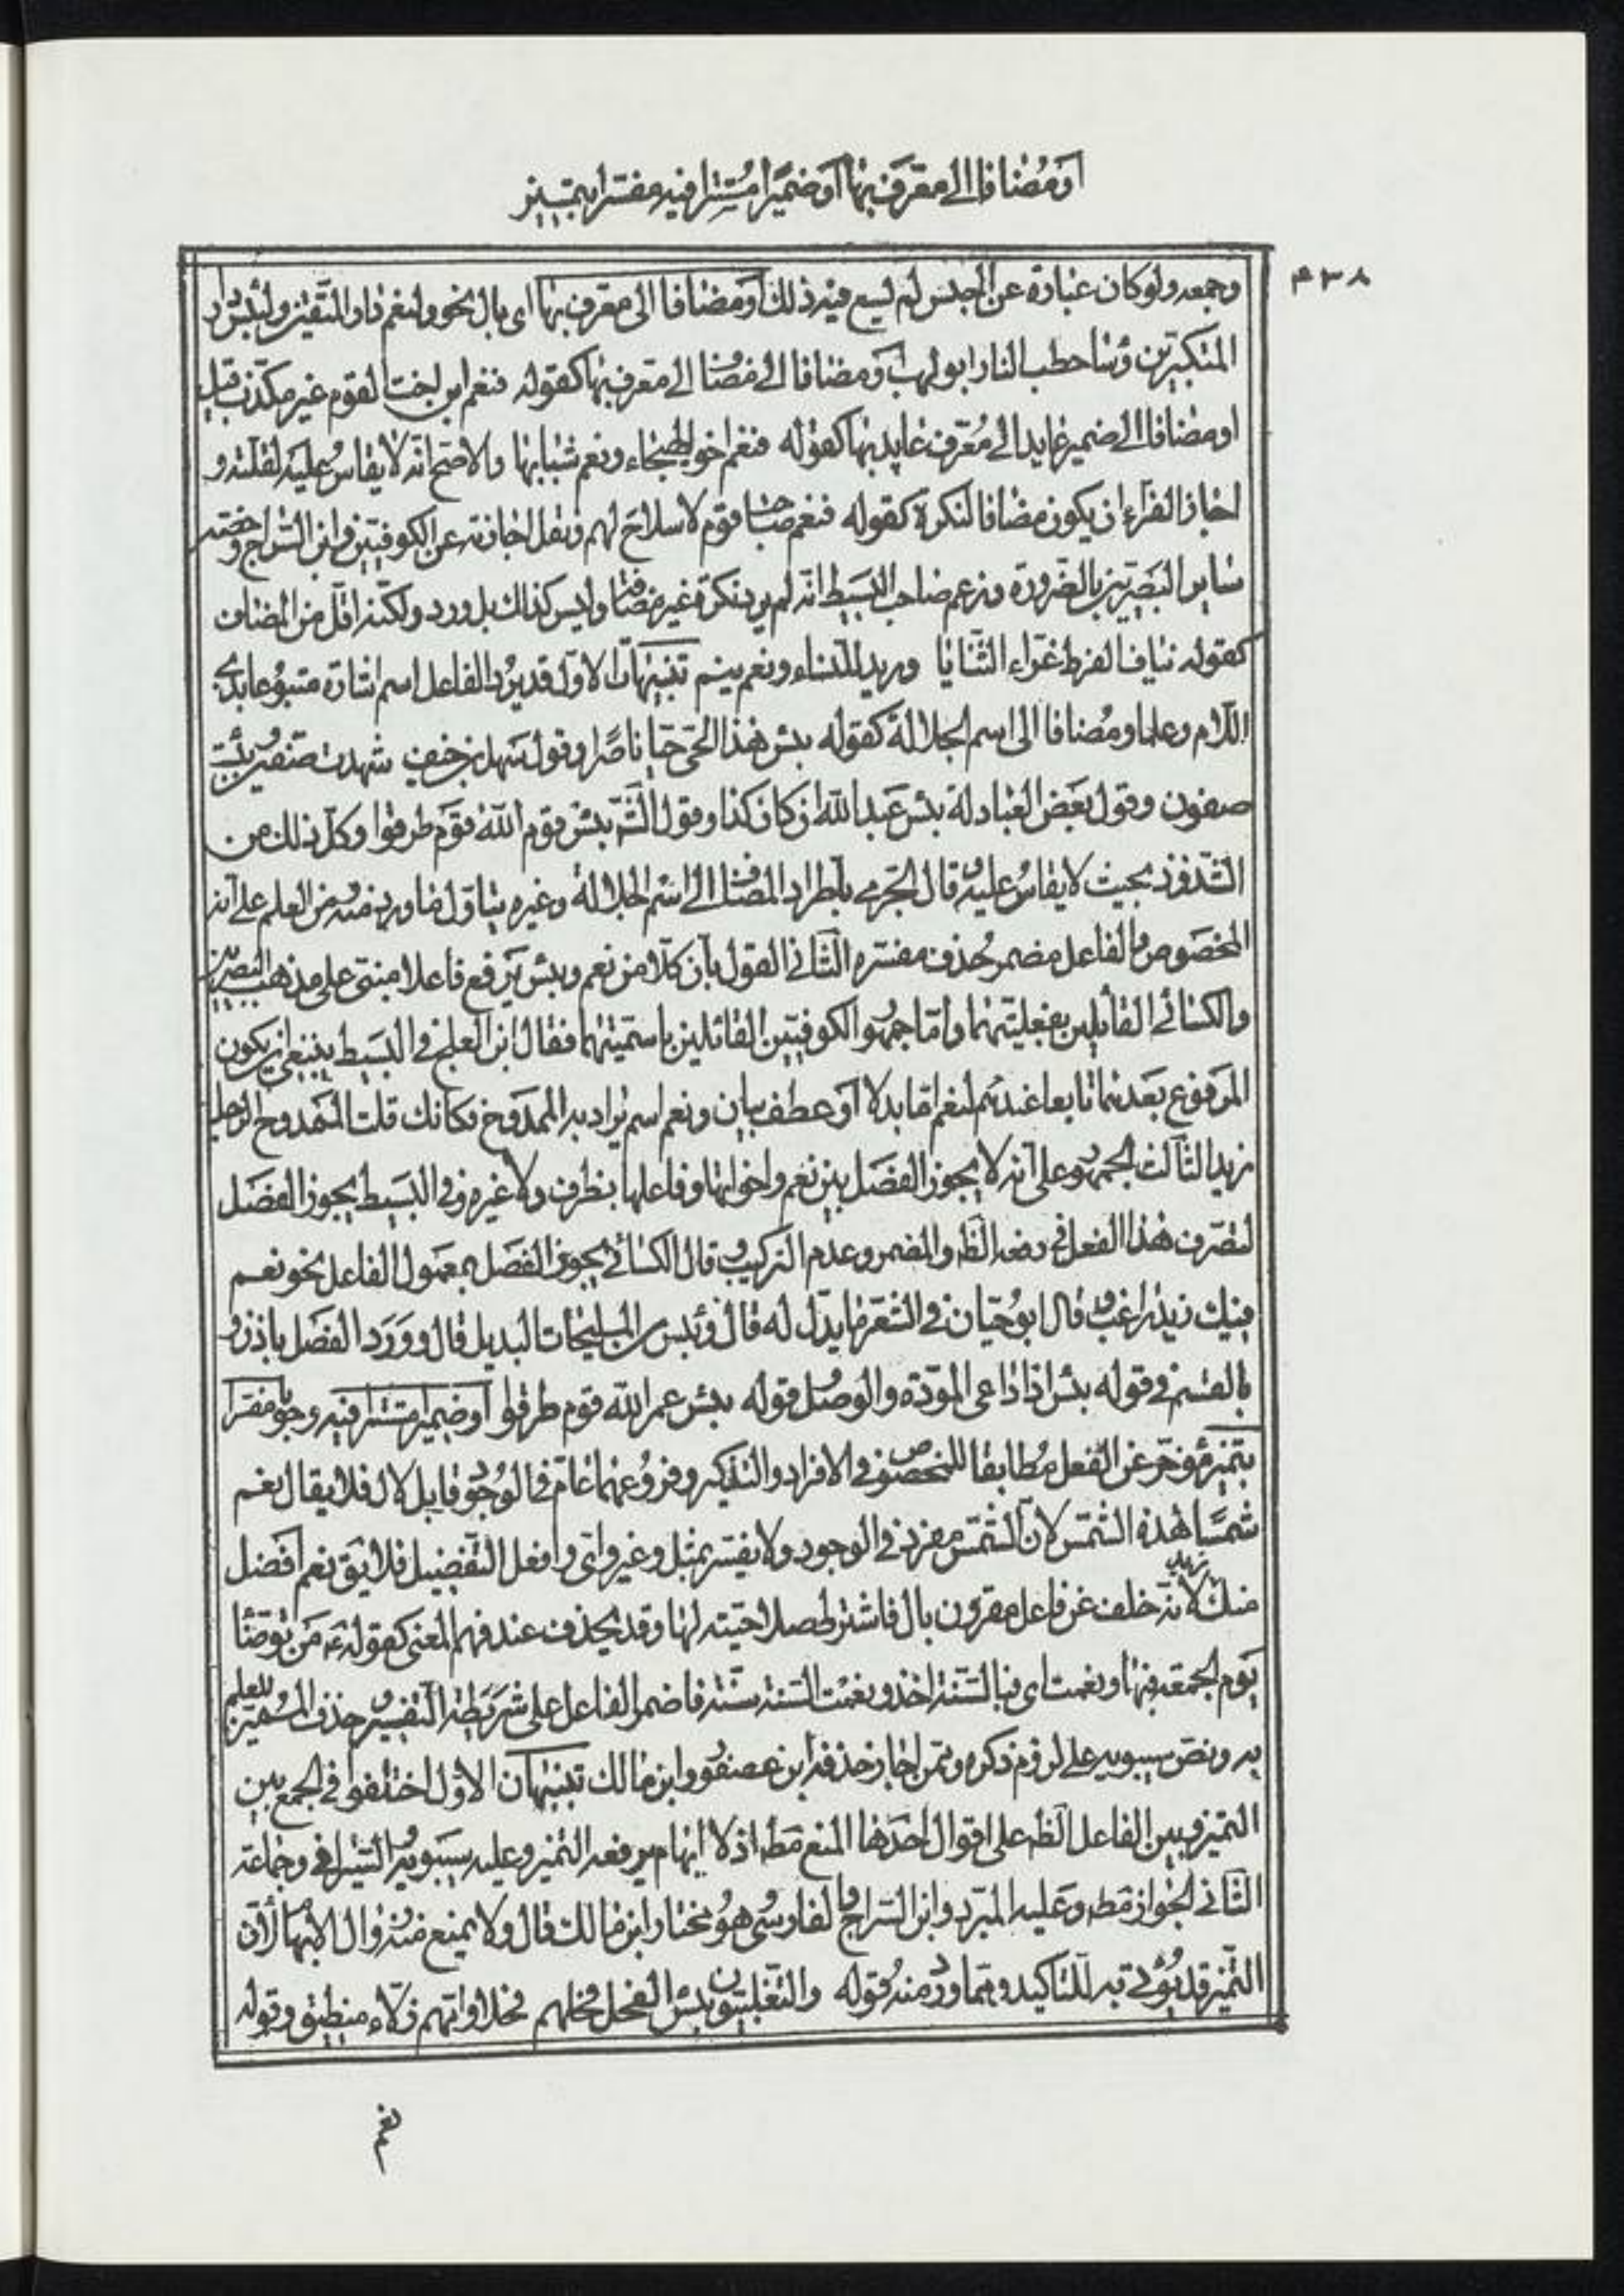 او مضافا الى معرف بها او ضميرا مستترا فيه مفسرا بتمييز
۴۳۸
وجمعه ولو كان عبارة عن الجنس لم يسع فيه ذلك او مضافا الى معرف بها اى بال نحو ولنعم دار المتقين ولبئس دار
المتكبرين وبئسا حطب النار ابو لهب او مضافا الى مضاف الى معرف بها كقوله فنعم ابن اخت القوم غير مكذب قيل
او مضافا الى ضمير عايد الى معرف عايد بها كقوله فنعم اخو الهيجاء ونعم شبابها والاصح انه لا يقاس عليه لقلته و
اجاز الفراء ان يكون مضافا لنكرة كقوله فنعم صاحب قوم لا سلاح لهم ونقل اجازته عن الكوفيين وابن السراج وخصه
ساير البصريين بالضرورة وزعم صاحب البسيط انه لم يرد نكرة غير مضاف وليس كذلك بل ورد ولكنه اقل من المضاف
كقوله نياف القرط غراء الثنايا وريد للنساء ونعم نيم تنبيهات الاول قد يرد الفاعل اسم اشارة متبوعا بذى
اللام وعلما ومضافا الى اسم الجلالة كقوله بئس هذا الحى حيا ناصرا وقول سهل بن حنيف شهدت صفين وبئست
صفون وقول بعض العبادلة بئس عبد الله ان كان كذا وقول الش بئس قوم الله قوم طرقوا وكل ذلك من
الشذوذ بحيث لا يقاس عليه وقال الجرمي باطراد المضاف الى اسم الجلالة وغيره يتاول ما ورد منه من العلم على انه
المخصوص والفاعل مضمر حذف مفسره الثاني القول بان كلا من نعم وبئس يرفع فاعلا مبنى على مذهب البصريين
والكسائي القايلين بفعليتهما واما جمهور الكوفيين القائلين باسميتهما فقال ابن العلج في البسيط ينبغي ان يكون
المرفوع بعدهما تابعا عندهم لنعم اما بدلا او عطف بيان ونعم اسم يراد به الممدوح فكانك قلت الممدوح الرجل
زيد الثالث الجمهور على انه لا يجوز الفصل بين نعم واخواتها وفاعلها بظرف ولا غيره وفى البسيط يجوز الفصل
لتصرف هذا الفعل في رفعه الظ والمضمر وعدم التركيب وقال الكسائي يجوز الفصل بمعمول الفاعل نحو نعم
فيك زيد راغب وقال ابو حيان في الشعر ما يدل له قال وبئس من المليحات البديل قال وورد الفصل باذن و
بالقسم في قوله بئس اذا داعى المودة والوصل وقوله بئس عمر الله قوم طرقوا او ضميرا مستترا فيه وجوبا مفسرا
بتمييز مؤخر عن الفعل مطابقا للمخصوص في الافراد والتذكير وفروعهما عام في الوجود قابل لال فلا يقال نعم
شمسا هذه الشمس لان الشمس مفرد في الوجود ولا يفسر بمثل وغير واى وافعل التفضيل فلا يق نعم افضل
منك زيد لانه خلف عن فاعل مقرون بال فاشترط صلاحيته لها وقد يحذف عند فهم المعنى كقوله ع من توضأ
يوم الجمعة فبها ونعمت اى فبالسنة اخذ ونعمت السنة سنة فاضمر الفاعل على شريطة التفسير وحذف المميز للعلم
به ونص سيبويه على لزوم ذكره وممن اجاز حذفه ابن عصفور وابن مالك تنبيهان الاول اختلفوا في الجمع بين
التميز وبين الفاعل الظ على اقوال احدها المنع مط اذ لا ابهام يرفعه التميز وعليه سيبويه والسيرافى وجماعة
الثانى الجواز مط وعليه المبرد وابن السراج والفارسى وهو مختار ابن مالك قال ولا يمنع منه زوال الابهام لان
التميز قد يؤتى به للتاكيد ومما ورد منه قوله والتغلبيون بئس الفحل فحلهم فحلا وامهم زلاء منطيق وقوله
نعم